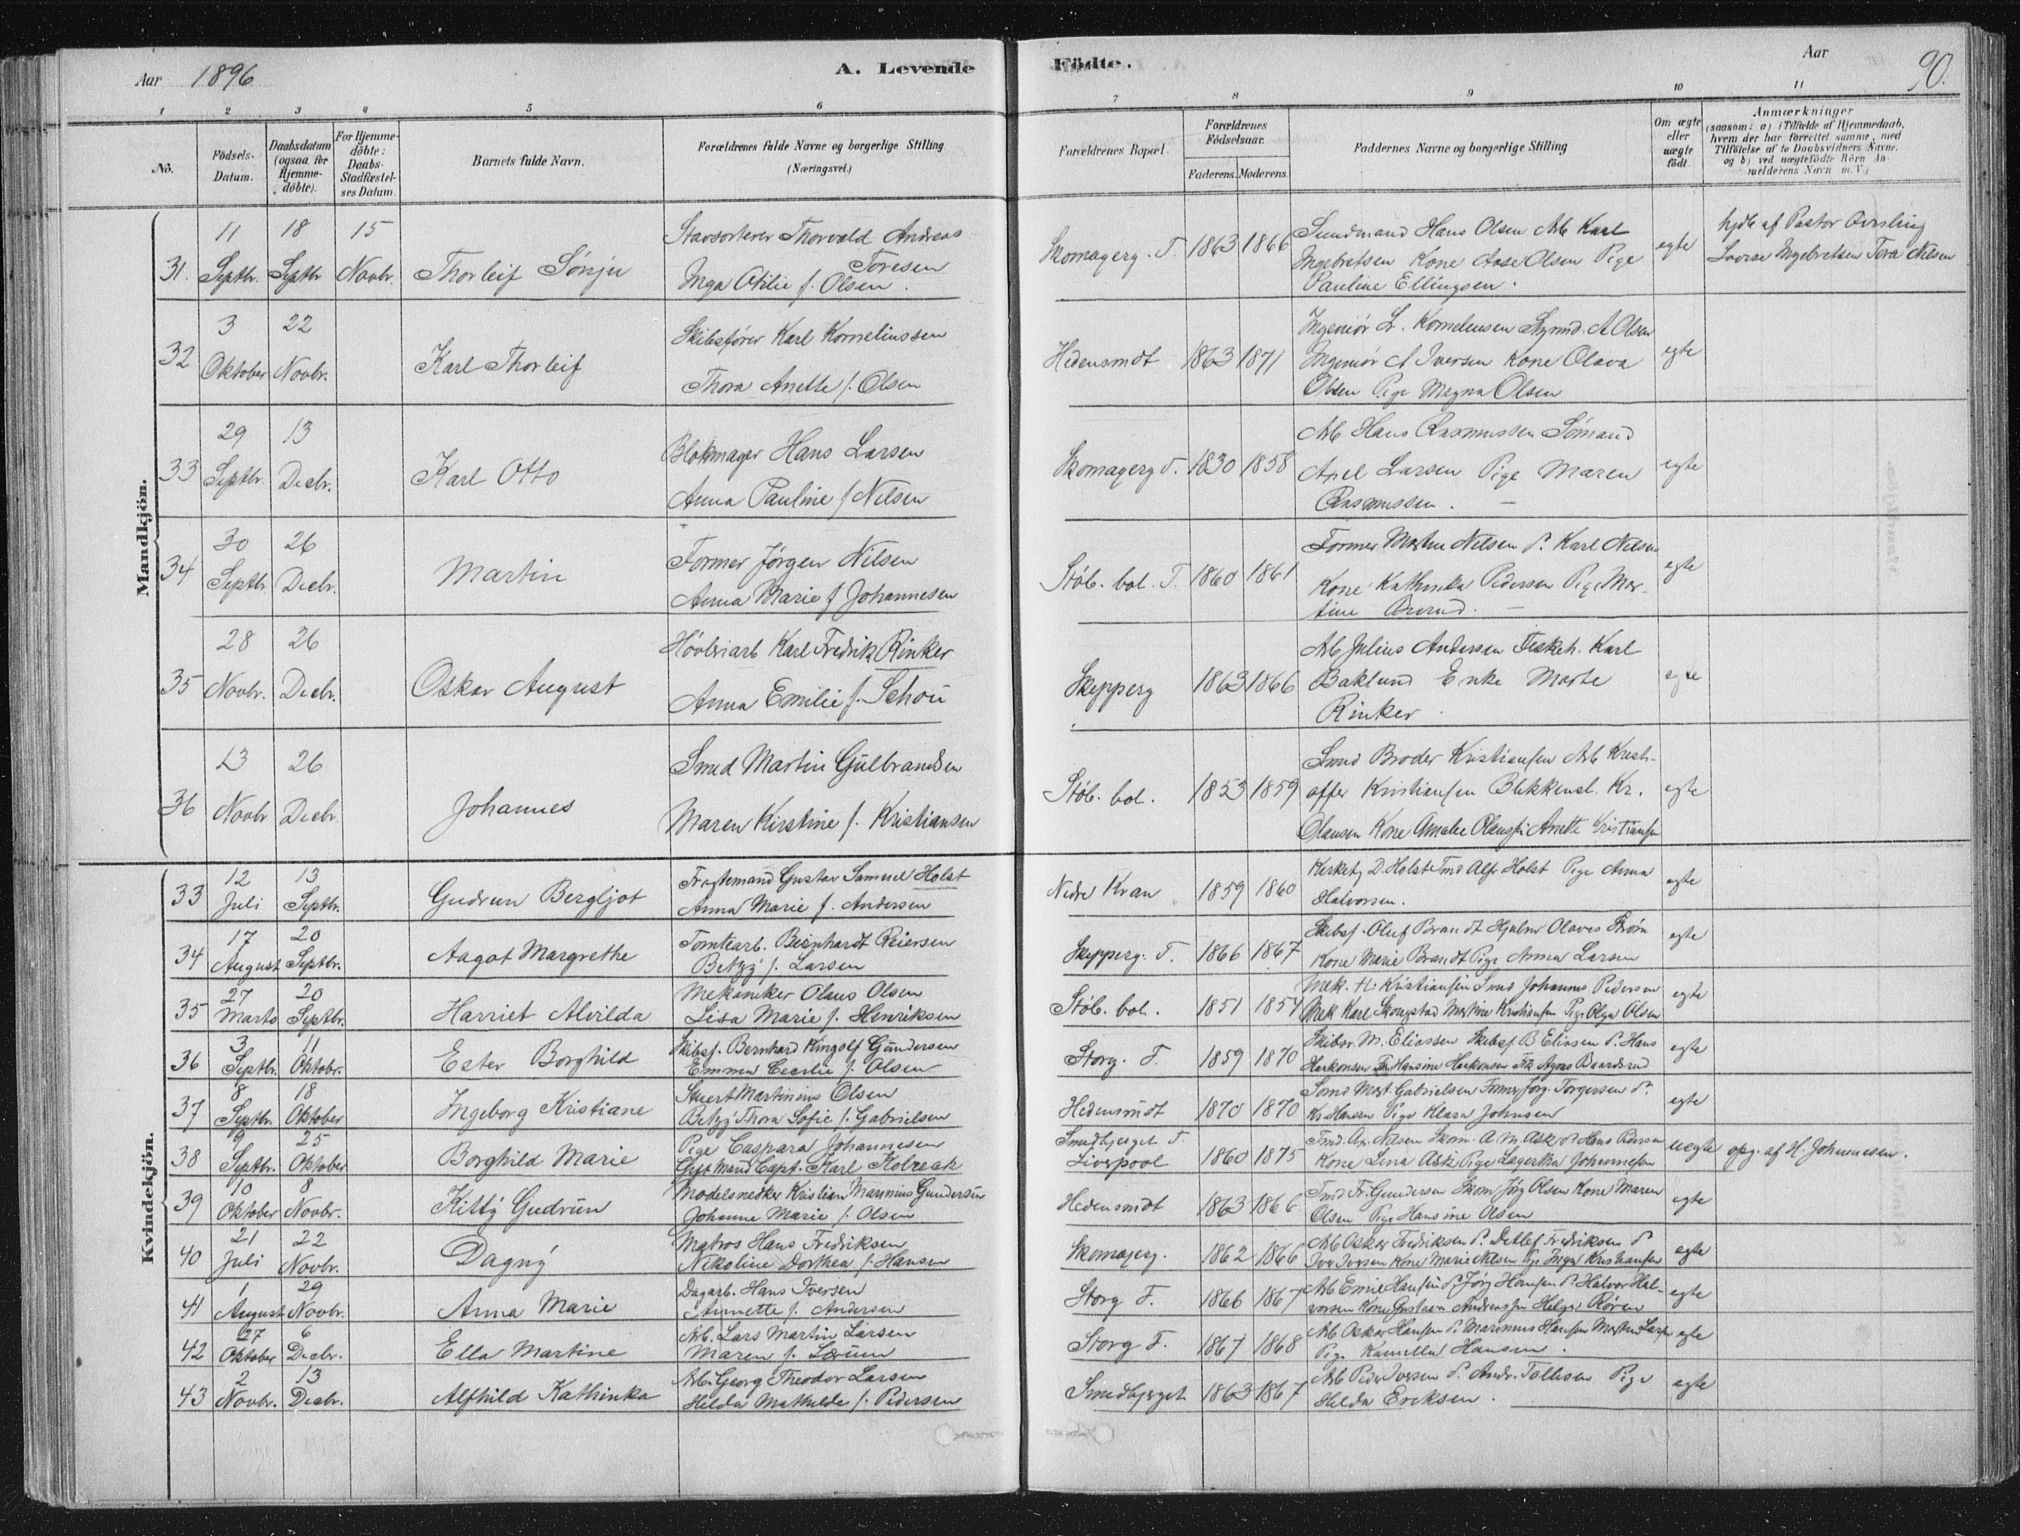 Aar 1896 A. Levende Födte. Aar 90.
1 2 3 4 5 6 7 8 9 10 11
No. Födsels-Datum. Daabsdatum (ogsaa for Hjemmedöbte). For Hjemmedöbte: Daabs-Stadfæstelses Datum. Barnets fulde Navn. Forældrenes fulde Navne og borgerlige Stilling (Næringsvei.) Forældrenes Bopæl. Forældrenes Födselsaar. Faderens. Moderens. Faddernes Navne og borgerlige Stilling Om ægte eller uægte födt. Anmærkninger (saasom: a) i Tilfælde af Hjemmedaab, hvem der har forrettet samme, med Tilföielse af to Daabsvidners Navne, og b) ved uægtefödte Börn Anmelderens Navn m. V.)
Mandkjön.
11 18 15 Stavsorterer Thorvald Andreas Sundmand Hans Olsen Arb Karl hjdb af Pastor
31. Septbr. Septbr Novbr. Thorleif Sønju Toresen Skomagerg. F. 1863 1866 Ingebretsen Kone Aase Olsen Pige egte Lovise Ingebretsen Tora Nilsen
Inga Otilie f. Olsen. Pauline Ellingsen.
3 22 Skibsfører Karl Korneliussen Ingeniør L. Korneliussen A Olsen
32 Oktober Novbr. Karl Thorleif Hedensmdt 1863 1871 Ingeniør A Iversen Kone Olava egte
Thora Anette f. Olsen Olsen Pige Magna Olsen
29 13 Blokmager Hans Larsen Arb Hans Rasmussen Sømand
33 Septbr. Decbr. Karl Otto Skomagerg F. 1830 1858 Axel Larsen Pige Maren egte
Anna Pauline f Nilsen Rasmussen.
30 26 Former Jørgen Nilsen Former Martin Nilsen P. Karl Nilsen
34 Septbr. Decbr. Martin Støb. bol. F. 1860 1861 Kone Kathinka Pedersen Pige Mar- egte
Anna Marie f Johannesen tine
28 26 Høvleriarb Karl Fredrik Rinker Arb Julius Andersen Fiskeh. Karl
35 Novbr. Decbr. Oskar August Skipperg 1863 1866 Baklund Enke Marte egte
Anna Emilie f. Schou Rinker.
23 26 Smed Martin Gulbrandsen Smed Broder Kristiansen Arb Krist-
36 Novbr Decbr. Johannes Støb. bol. 1853 1859 offer Kristiansen Blikkensl. Kr. egte
Maren Kirstine f. Kristiansen Olausen Kone Amalie Anette Kristiansen
Kvindekjön.
12 13 Fragtemand Gustav Samuel Holst D. Holst Tmd Alfr Holst Pige Anna
33 Juli Septbr. Gudrun Bergljot Anna Marie f. Andersen Nedre Kran 1859 1860 Halvorsen. egte
17 20 Tomtearb. Bernhardt Reiersen Skibsf. Oluf Brandt Hjalmr Olaves Strøm
34 August Septbr. Aagot Margrethe Betzy f. Larsen Skipperg. F. 1866 1867 Kone Marie Brandt Pige Anna Larsen egte
27 20 Mekaniker Olaus Olsen Mek. H. Kristiansen Smed Johannes Pedersen
35 Marts Septbr. Harriet Alvilda Lisa Marie f. Henriksen Støb. bol. 1851 1854 Mek Karl Skougstad Martine Kristiansen Pige Olga Olsen egte
3 11 Skibsf. Bernhard Kingolf Gundersen Skibsr. M. Eliassen Skibsf B Eliasen P. Hans
36 Septbr. Oktobr. Ester Borghild Emma Cecilie f. Olsen Storg. F. 1859 1870 Haakonsen Fr Hansine Haakonsen Frk Agnes egte
8 18 Stuert Martinius Olsen Smed Mart Gabrielsen Former Jørg. Torgersen P.
37 Septbr. Oktober Ingeborg Kristiane Betzy Thora Sofie f. Gabrielsen Hedensmdt 1870 1870 Kr Hansen Pige Klara Johnsen egte
9 25 Pige Caspara Johannesen Smedbjerget F. Tmd. Nilsen Skom. A M. Ask P. Hans
38 Septbr. Oktober Borghild Marie Gift Mand Capt. Karl Liverpool 1860 1875 Kone Lina Ask Pige Lagertha Johannesen uegte opg. af H. Johannesen.
10 8 Modelsnedker Kristian Marinius Gundersen Tmd Fr. Gundersen Skom Jörg Olsen Kone Maren
39 Oktober Novbr. Kitty Gudrun Johanne Marie f. Olsen Hedensmdt 1863 1866 Olsen Pige Hansine Olsen egte
21 22 Matros Hans Fredriksen Arb Oskar Fredriksen P. Detlef Fredriksen P
40 Juli Novbr. Dagny Nikoline Dorthea f. Hansen Skomagerg. 1862 1866 Iver Iversen Kone Marie Nilsen Pige Inga Kristiansen egte
1 29 Dagarb. Hans Iversen Arb Emil Hansen P. Jörg Hansen P. Halvor Hal-
41 August Novbr. Anna Marie Annette f. Andersen Storg F. 1866 1867 vorsen Kone Gustava Andreassen Helga Røren egte
27 6 Arb. Lars Martin Larsen Arb Oskar Hansen P. Marinius Hansen
42 Oktober Decbr. Ella Martine Maren f. Storg F. 1867 1868 Pige Kamella Hansen. egte
2 13 Arb. Georg Theodor Larsen Arb Peder Iversen P. Andr. Tollesen Pige
43 Novbr. Decbr. Alfhild Kathinka Hilda Mathilde f. Pedersen Smedbjerget 1863 1867 Hilda Eriksen. egte